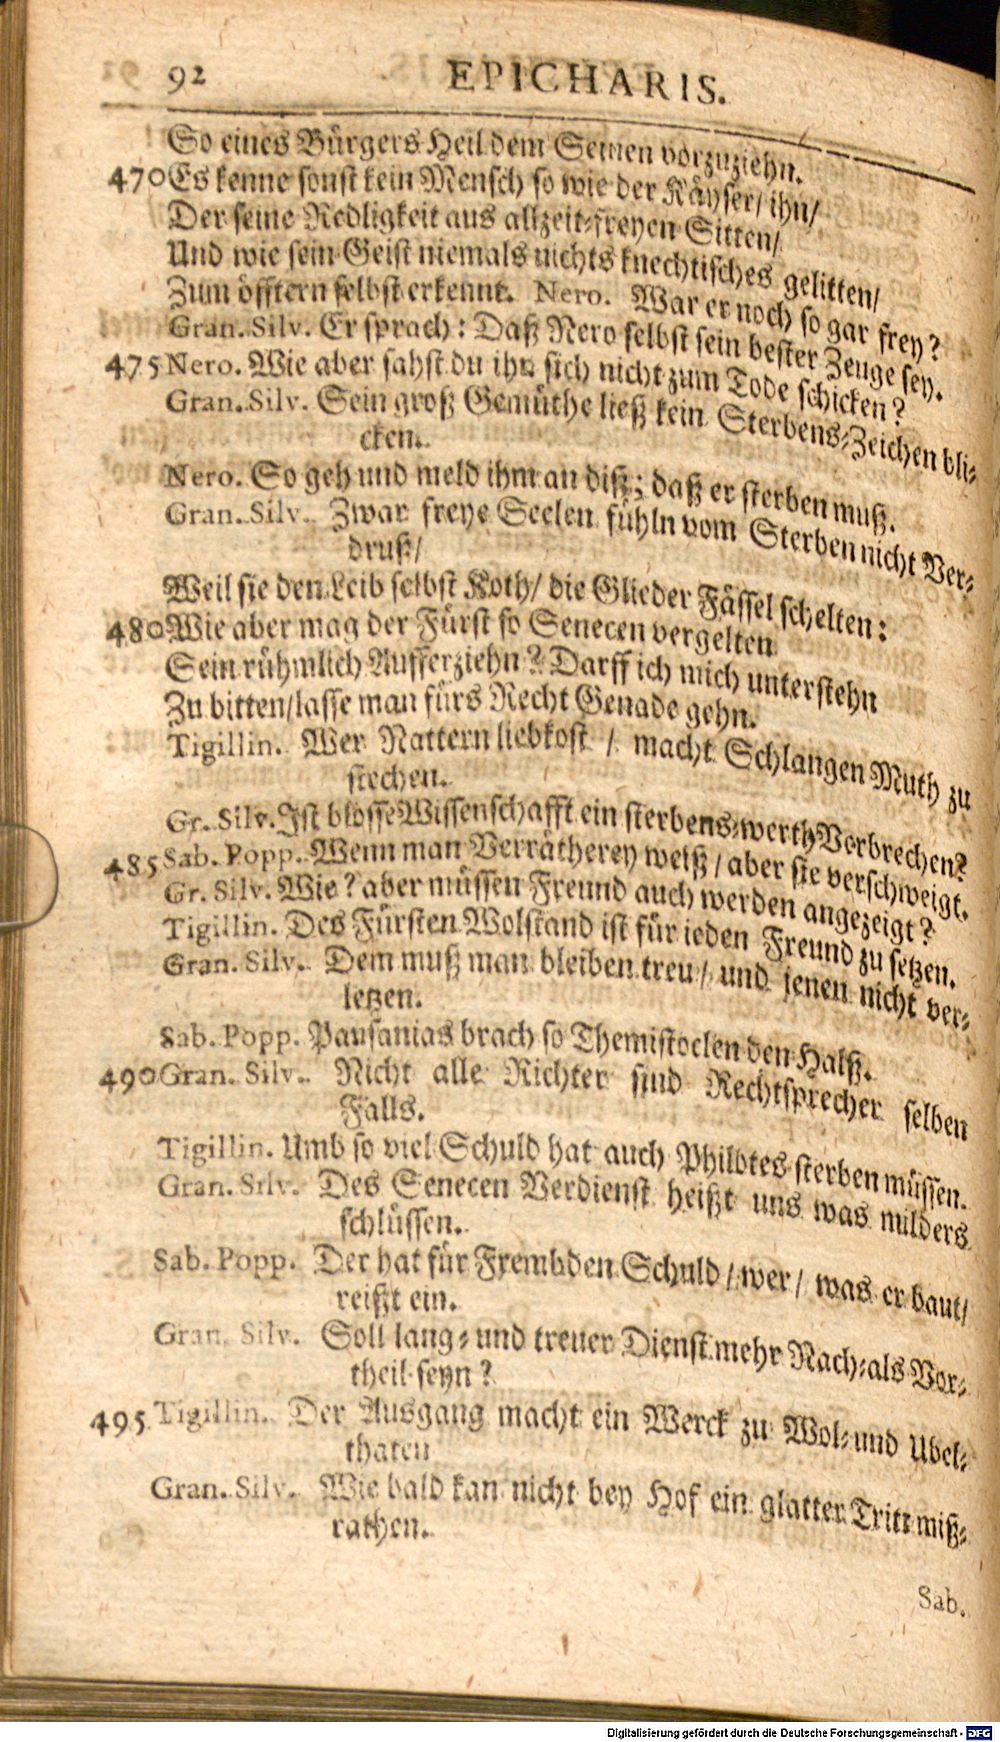 92 EPICHARIS.
So eines Bürgers Heil dem Seinen vorzuziehn.
470 Es kenne sonst kein Mensch so wie der Käyser/ ihn/
Der seine Redligkeit aus allzeit-freyen Sitten/
Und wie sein Geist niemals nichts knechtisches gelitten/
Zum öfftern selbst erkennt. Nero. War er noch so gar frey?
Gran. Silv. Er sprach: Daß Nero selbst sein bester Zeuge sey.
475 Nero. Wie aber sahst du ihn sich nicht zum Tode schicken?
Gran. Silv. Sein groß Gemüthe ließ kein Sterbens-Zeichen bli-
cken.
Nero. So geh und meld ihm an diß; daß er sterben muß.
Gran. Silv. Zwar freye Seelen fühln vom Sterben nicht Ver-
druß/
Weil sie den Leib selbst Koth/ die Glieder Fässel schelten:
480 Wie aber mag der Fürst so Senecen vergelten
Sein rühmlich Aufferziehn? Darff ich mich unterstehn
Zu bitten/ lasse man fürs Recht Genade gehn.
Tigillin. Wer Nattern liebkost / macht Schlangen Muth zu
stechen.
Gr. Silv. Ist blosse Wissenschafft ein sterbens-werth Verbrechen?
485 Sab. Popp. Wenn man Verrätherey weiß / aber sie verschweigt.
Gr. Silv. Wie? aber müssen Freund auch werden angezeigt?
Tigillin. Des Fürsten Wolstand ist für ieden Freund zu setzen.
Gran. Silv. Dem muß man bleiben treu / und jenen nicht ver-
letzen.
Sab. Popp. Pausanias brach so Themistoclen den Halß.
490 Gran. Silv. Nicht alle Richter sind Rechtsprecher selben
Falls.
Tigillin. Umb so viel Schuld hat auch Philotes sterben müssen.
Gran. Silv. Des Senecen Verdienst heißt uns was milders
schlüssen.
Sab. Popp. Der hat für Frembden Schuld / wer / was er baut/
reißt ein.
Gran. Silv. Soll lang- und treuer Dienst mehr Nach-als Vor-
theil seyn?
495 Tigillin. Der Ausgang macht ein Werck zu Wol-und Ubel-
thaten
Gran. Silv. Wie bald kan nicht bey Hof ein glatter Tritt miß-
rathen.
Sab.
Digitalisierung gefördert durch die Deutsche Forschungsgemeinschaft - DFG